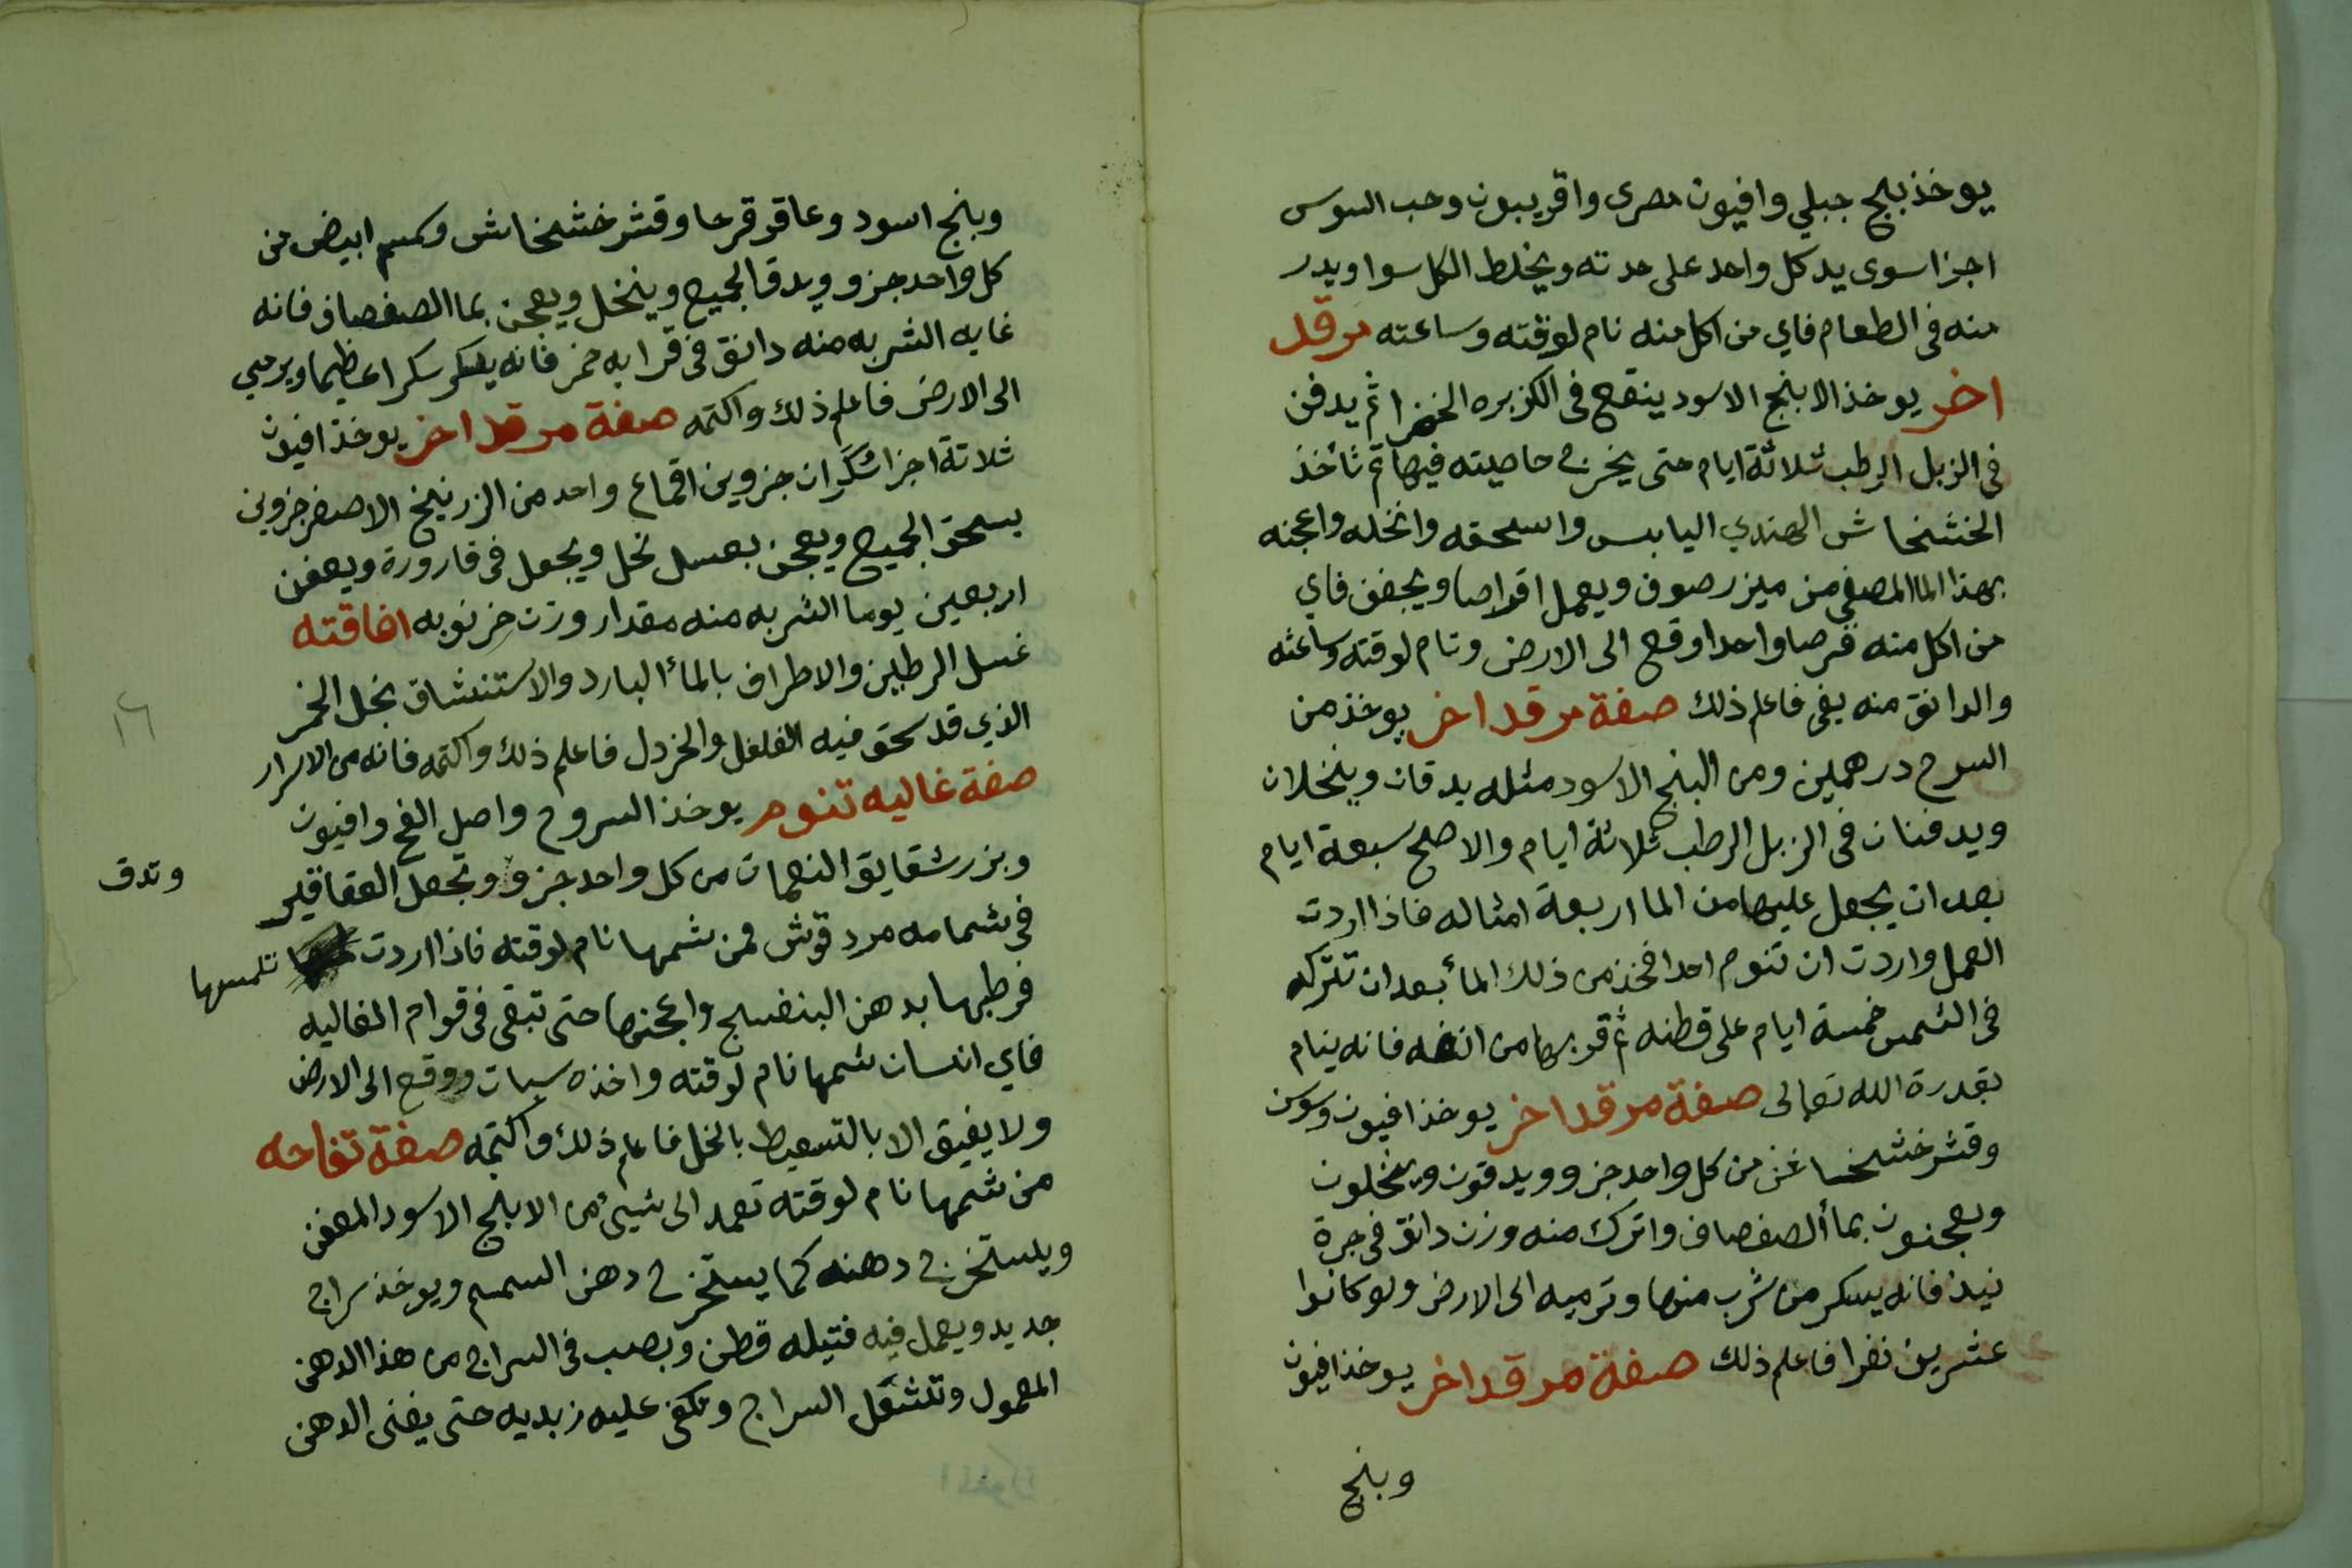 يوخذ بنج جبلي وافيون مصرى وافربيون وحب السوس
اجزا سوى يدكل واحد على حدته ويخلط الكل سوا ويدر
منه فى الطعام فاي من اكل منه نام لوقته وساعته مرقد
اخر يوخذ الابنج الاسود ينقع فى الكزبره الخضرا ثم يدفن
فى الزبل الرطب ثلاثة ايام حتى يخرج حاصيته فيها ثم تأخذ
الخشخاش الهندي اليابس واسحقه وانخله واعجنه
بهذا الما المصفى من ميزر صوف ويعمل اقراصا ويجفف فاي
من اكل منه قرصا واحدا وقع الى الارض ونام لوقته وساعته
والدانق منه يفى فاعلم ذلك صفة مرقد اخر يوخذ من
السرح درهمين ومن البنج الاسود مثله يدقان وينخلان
ويدفنان فى الزبل الرطب ثلاثة ايام والاصلح سبعة ايام
بعد ان يجعل عليها من الما اربعة امثاله فاذا اردت
العمل واردت ان تنوم احدا فخذ من ذلك الماء بعد ان تتركه
فى الشمس خمسة ايام على قطنه ثم قربها من انفه فانه ينام
بقدرة الله تعالى صفة مرقد اخر يوخذ افيون وسوس
وقشر خشخاش من كل واحد جزو ويدقون وينخلون
ويعجنون بماء الصفصاف واترك منه وزن دانق فى جرة
نبيذ فانه يسكر من شرب منها وترميه الى الارض ولو كانوا
عشرين نفرا فاعلم ذلك صفة مرقد اخر يوخذ افيون
وبنج
وبنج اسود وعاقر قرحا وقشر خشخاش وكمسم ابيض من
كل واحد جزو ويدق الجميع وينخل ويعجن بما الصفصاف فانه
غايه الشربه منه دانق فى قرابه خمر فانه يسكر سكرا عظيما ويرمي
الى الارض فاعلم ذلك واكتمه صفة مرقد اخر يوخذ افيون
ثلاثة اجزا شكران جزوين اقماع واحد من الزرنيخ الاصفر جزوين
يسحق الجميع ويعجن بعسل نخل ويجعل فى قارورة ويعفن
اربعين يوما الشربه منه مقدار وزن خرنوبه افاقته
غسل الرطلين والاطراف بالماء البارد والاستنشاق بخل الخمر
الذي قد سحق فيه الفلفل والخردل فاعلم ذلك واكتمه فانه من الاسرار
١٦
صفة غاليه تنوم يوخذ السروح واصل الفح وافيون
وبزر شقايق النعمان من كل واحد جزو وتجعل العقاقير
وتدق
فى شمامه مردقوش فمن شمها نام لوقته فاذا اردت تلمسها
فرطبها بدهن البنفسج واعجنها حتى تبقى فى قوام الغاليه
فاي انسان شمها نام لوقته واخذه سبات ووقع الى الارض
ولا يفيق الا بالتسعيط بالخل فاعلم ذلك واكتمه صفة تفاحه
من شمها نام لوقته تعمد الى شيئ من الابنج الاسود المعفن
ويستخرج دهنه كما يستخرج دهن السمسم ويوخذ سراج
جديد ويعمل فيه فتيله قطن ويصب فى السراج من هذا الدهن
المعمول وتشعل السراج وتكفى عليه زبديه حتى يفنى الدهن